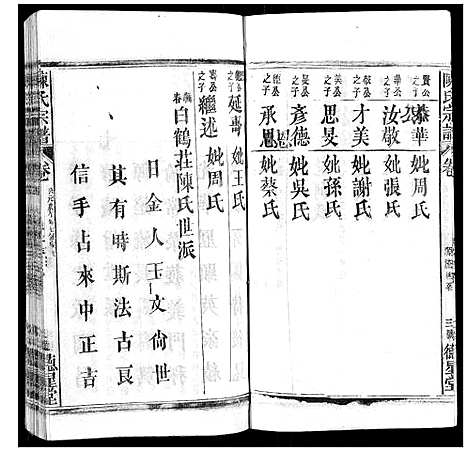 陳氏宗譜
卷
三
德星堂
賢公之子
恭華 妣周氏
華公之子
汝敬 妣張氏
敬公之子
才美 妣謝氏
美公之子
思旻 妣孫氏
旻公之子
彥德 妣吳氏
恩公之子
承恩 妣蔡氏
之子 延壽 妣王氏
壽公之子
繼述 妣周氏
白鶴莊陳氏世派
日金人玉 文尙世
其有時斯法古良
信手占來中正吉
陳氏宗譜
卷
德星堂